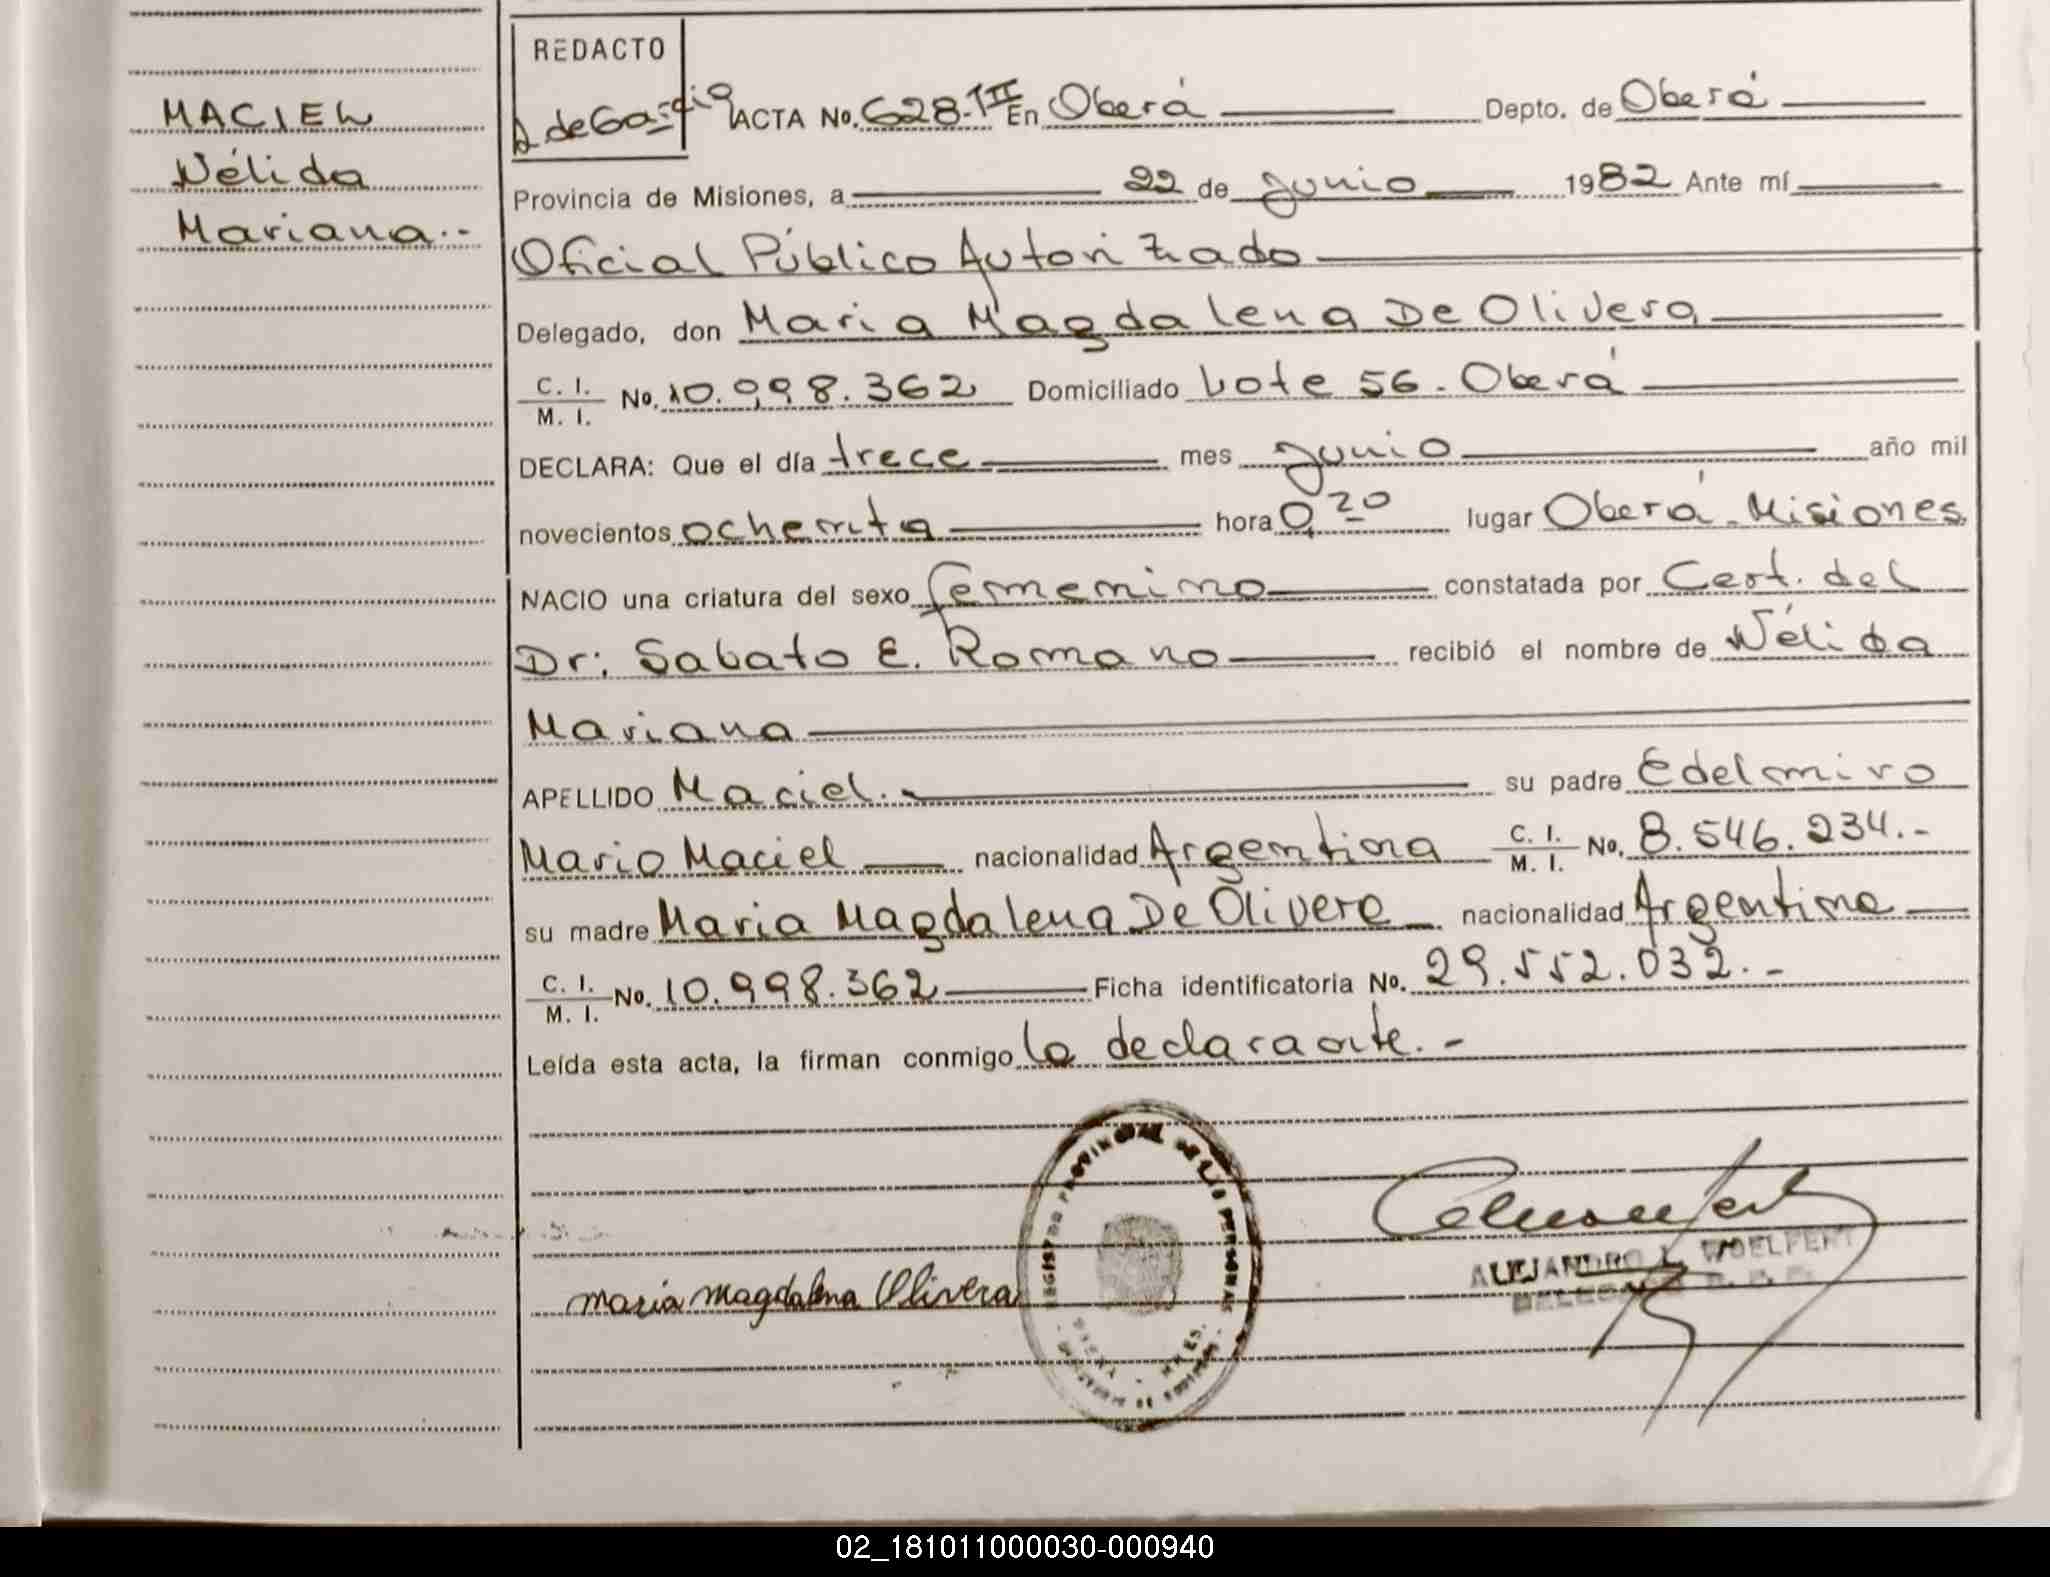 MACIEL
Nélida
Mariana.-
REDACTO
ACTA No. 628-TºII En Oberá Depto. de Oberá
Provincia de Misiones, a 22 de junio 1982 Ante mí
Oficial Público Autorizado
Delegado, don Maria Magdalena De Olivera
C. I. / M. I. No. 10.998.362 Domiciliado Lote 56. Oberá
DECLARA: Que el día trece mes junio año mil
novecientos ochenta hora 0,20 lugar Oberá - Misiones
NACIO una criatura del sexo femenino constatada por Cert. del
Dr: Sabato E. Romano recibió el nombre de Nélida
Mariana
APELLIDO Maciel.- su padre Edelmiro
Mario Maciel nacionalidad Argentina C. I. / M. I. No. 8.546.234.-
su madre Maria Magdalena De Olivera nacionalidad Argentina
C. I. / M. I. No. 10.998.362 Ficha identificatoria No. 29.552.032.-
Leída esta acta, la firman conmigo la declarante.-
REGISTRO PROVINCIAL DE LAS PERSONAS
maria magdalena Olivera
ALEJANDRO L. WOELFERT
02_181011000030-000940